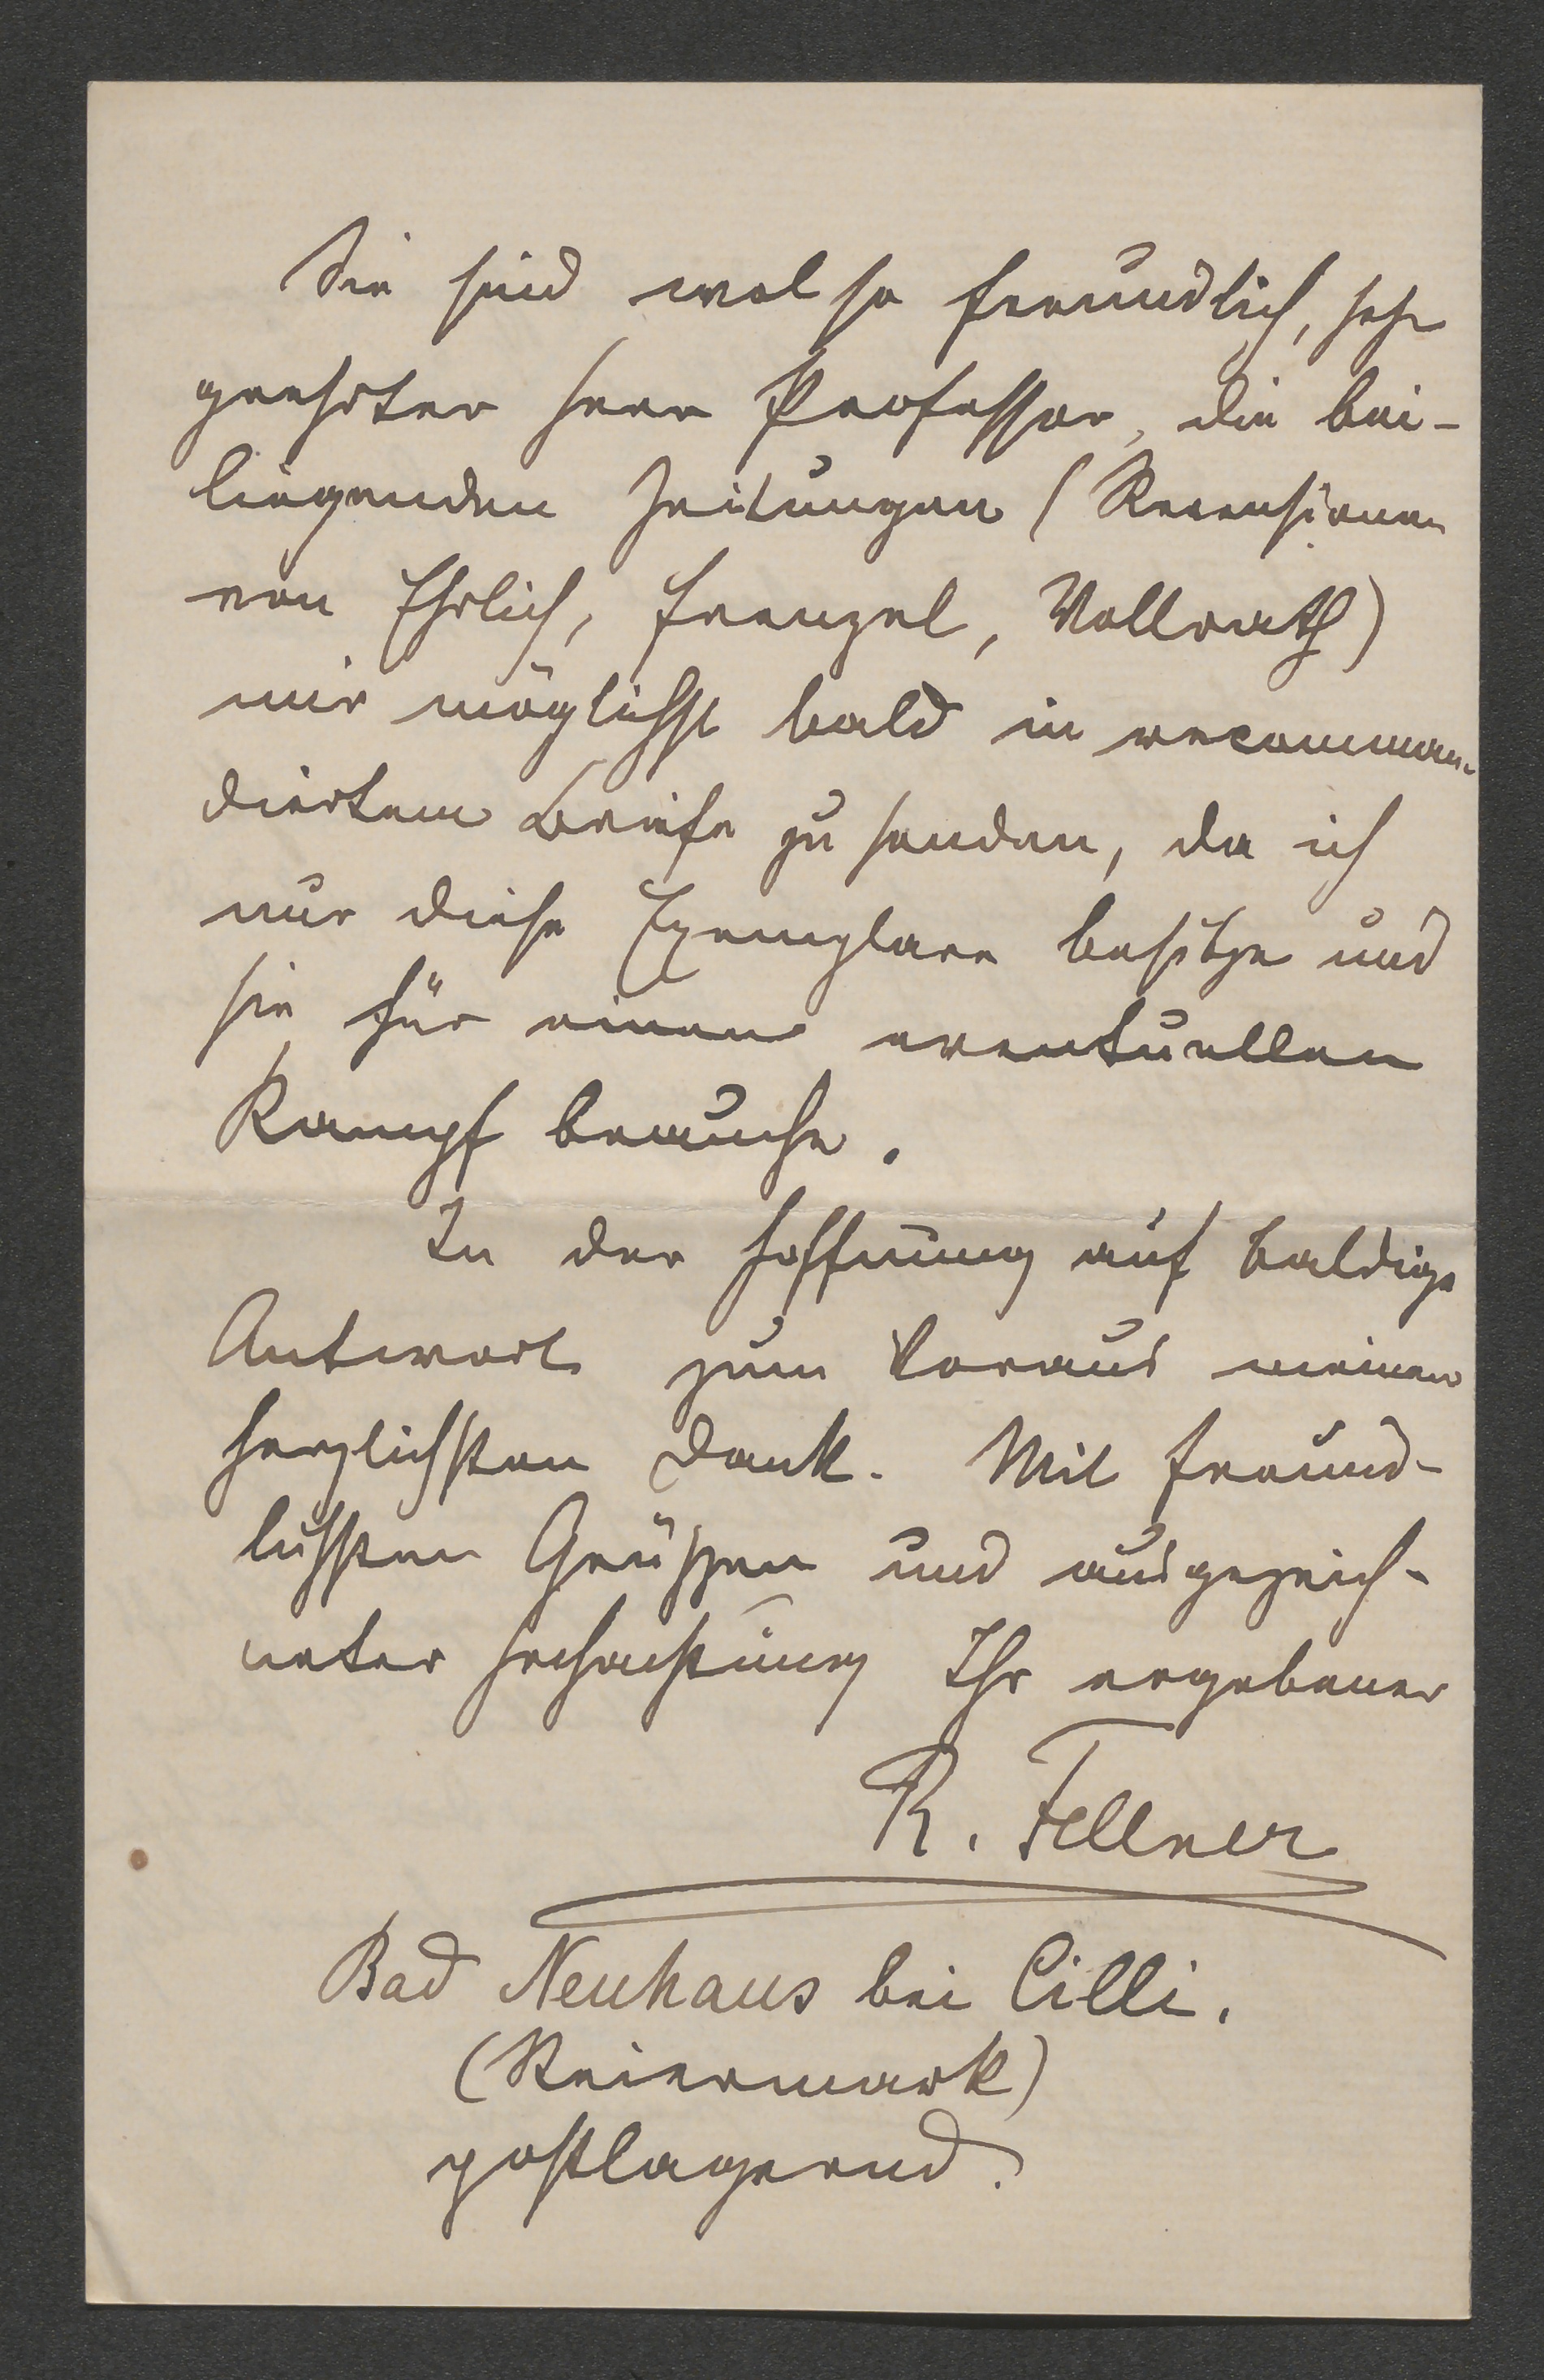 Sie sind wol so freundlich, sehr
geehrter Herr Professor, die bei-
liegenden Zeitungen (Recensionen
von Ehrlich, Frenzel, Vollrath)
mir möglichst bald in recomman-
diertem Briefe zu senden, da ich
nur diese Exemplare besitze und
sie für einen eventuellen
Kampf brauche.
In der Hoffnung auf baldige
Antwort zum Voraus meinen
herzlichsten Dank. Mit freund-
lichsten Grüßen und ausgezeich-
neter Hochachtung Ihr ergebener
R. Fellner
Bad Neuhaus bei Cilli.
(Steiermark)
postlagernd.